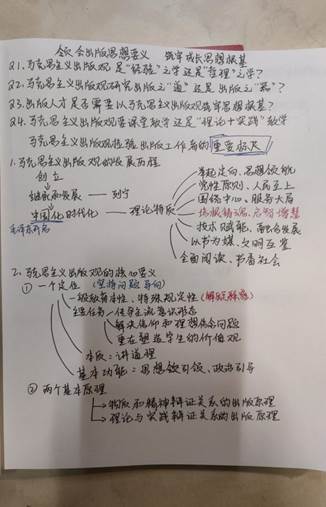 领会出版思想要义 筑牢成长思想根基
Q1.马克思主义出版观是“经验”之学还是“哲理”之学?
Q2.马克思主义出版观研究出版之“道”还是出版之“器”?
Q3.出版人才是否需要以马克思主义出版观筑牢思想根基?
Q4.马克思主义出版观要课堂教学还是“理论+实践”教学
马克思主义出版观检验出版工作者的重要标尺
1.马克思主义出版观的发展历程
创立
继承和发展——列宁
中国化时代化——理论特质
毛泽东开启
举旗定向、思想领航
党性原则、人民至上
围绕中心、服务大局
培根铸魂、启智增慧
技术赋能、融合发展
以书为媒、文明互鉴
全面阅读、书香社会
2.马克思主义出版观的核心要义
①一个定位(坚持问题导向)
一般般有本性、特殊规定性
主任务—传导主流意识形态
解决信仰和理想信念问题
重在塑造学生的价值观
本质:讲道理
基本功能:思想领引领、政治引导
②两个基本原理
物质和精神辩证关系的出版原理
理论与实践辩证关系的出版原理